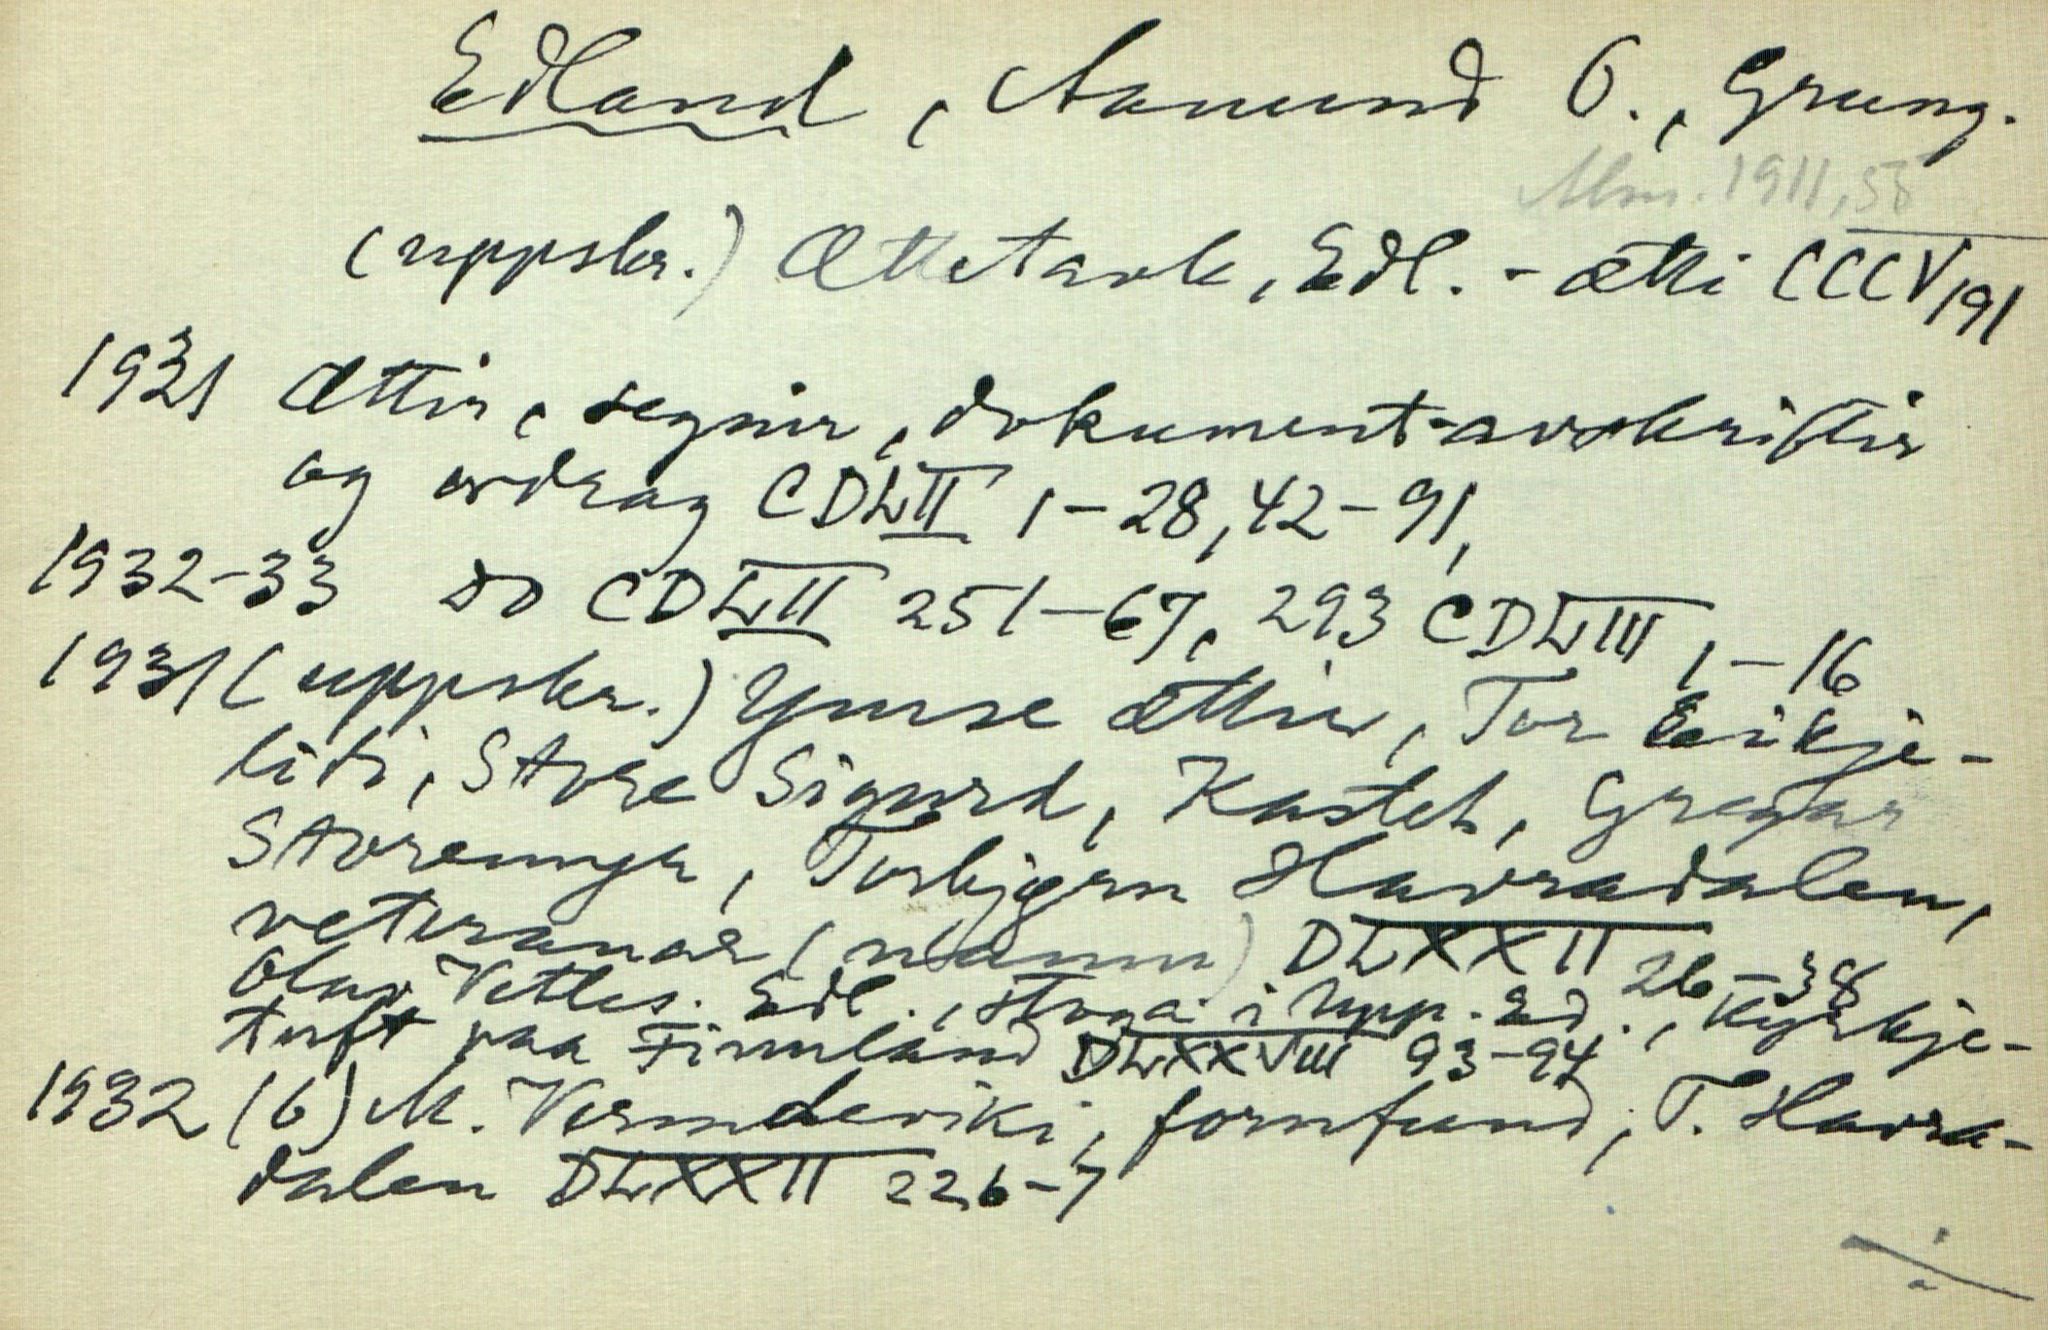 Edland, Aamund O., Grung.
Mm. 1911, 58
(uppskr.) Ættetavle, Edl. - ætti CCCV 191
1931 Ættir, segnir, dokument-avskriftir
og utdrag CDLII 1-28, 42-91,
1932-33 do CDLII 251-67, 293 CDLIII 1-16
1931 (uppskr.) Ymse ættir, Tor Eikje-
liti, Store Sigurd, Kasteh, Gregar
Storemyr, Torbjørn Havradalen,
veteranar (namn) DLXXII 26-38
Olav Vetles. Edl., stoga i Upp. Ed., Kyrkje-
tuft paa Finnland DLXXVIII 93-94
1932 (6) M. Vermdeviki, fornfund, T. Havra-
dalen DLXXII 226-7